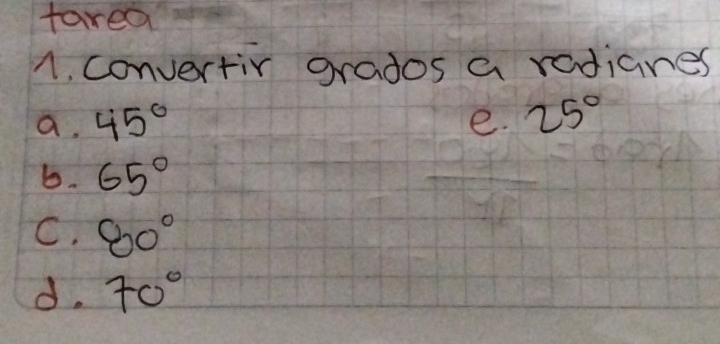 tarea
1. Convertir grados a radianes
a. 45°
e. 25°
b. 65°
c. 80°
d. 70°